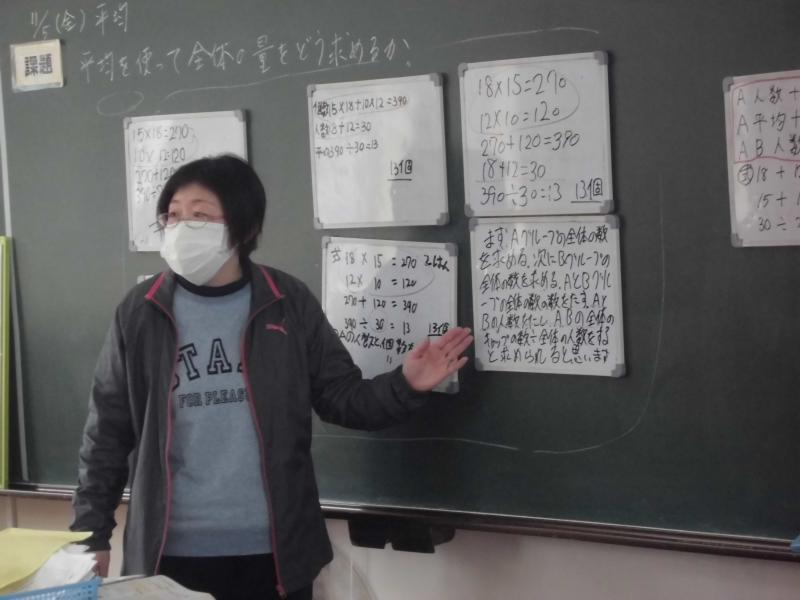 11/5(金) 平均
課題
平均を使って全体の量をどう求めるか?
15×18=270
10×12=120
270+120
個数15×18+10×12=390
人数18+12=30
平均390÷30=13
13個
18×15=270
12×10=120
270+120=390
18+12=30
390÷30=13 13個
式 18 × 15 = 270
12× 10 = 120
270 + 120 = 390
390 ÷ 30 = 13 13個
まずAグループの全体の数
を求める。次にBグループの
全体の数を求める。AとBグル
ープの全体の数の数をたす。Aと
Bの人数をたし、A,Bの全体の
の数÷全体の人数をする
と求められると思います
A 人数+
A 平均+
A B 人数
式 18+1
15+1
30÷2
TAA
FOR PLEAS